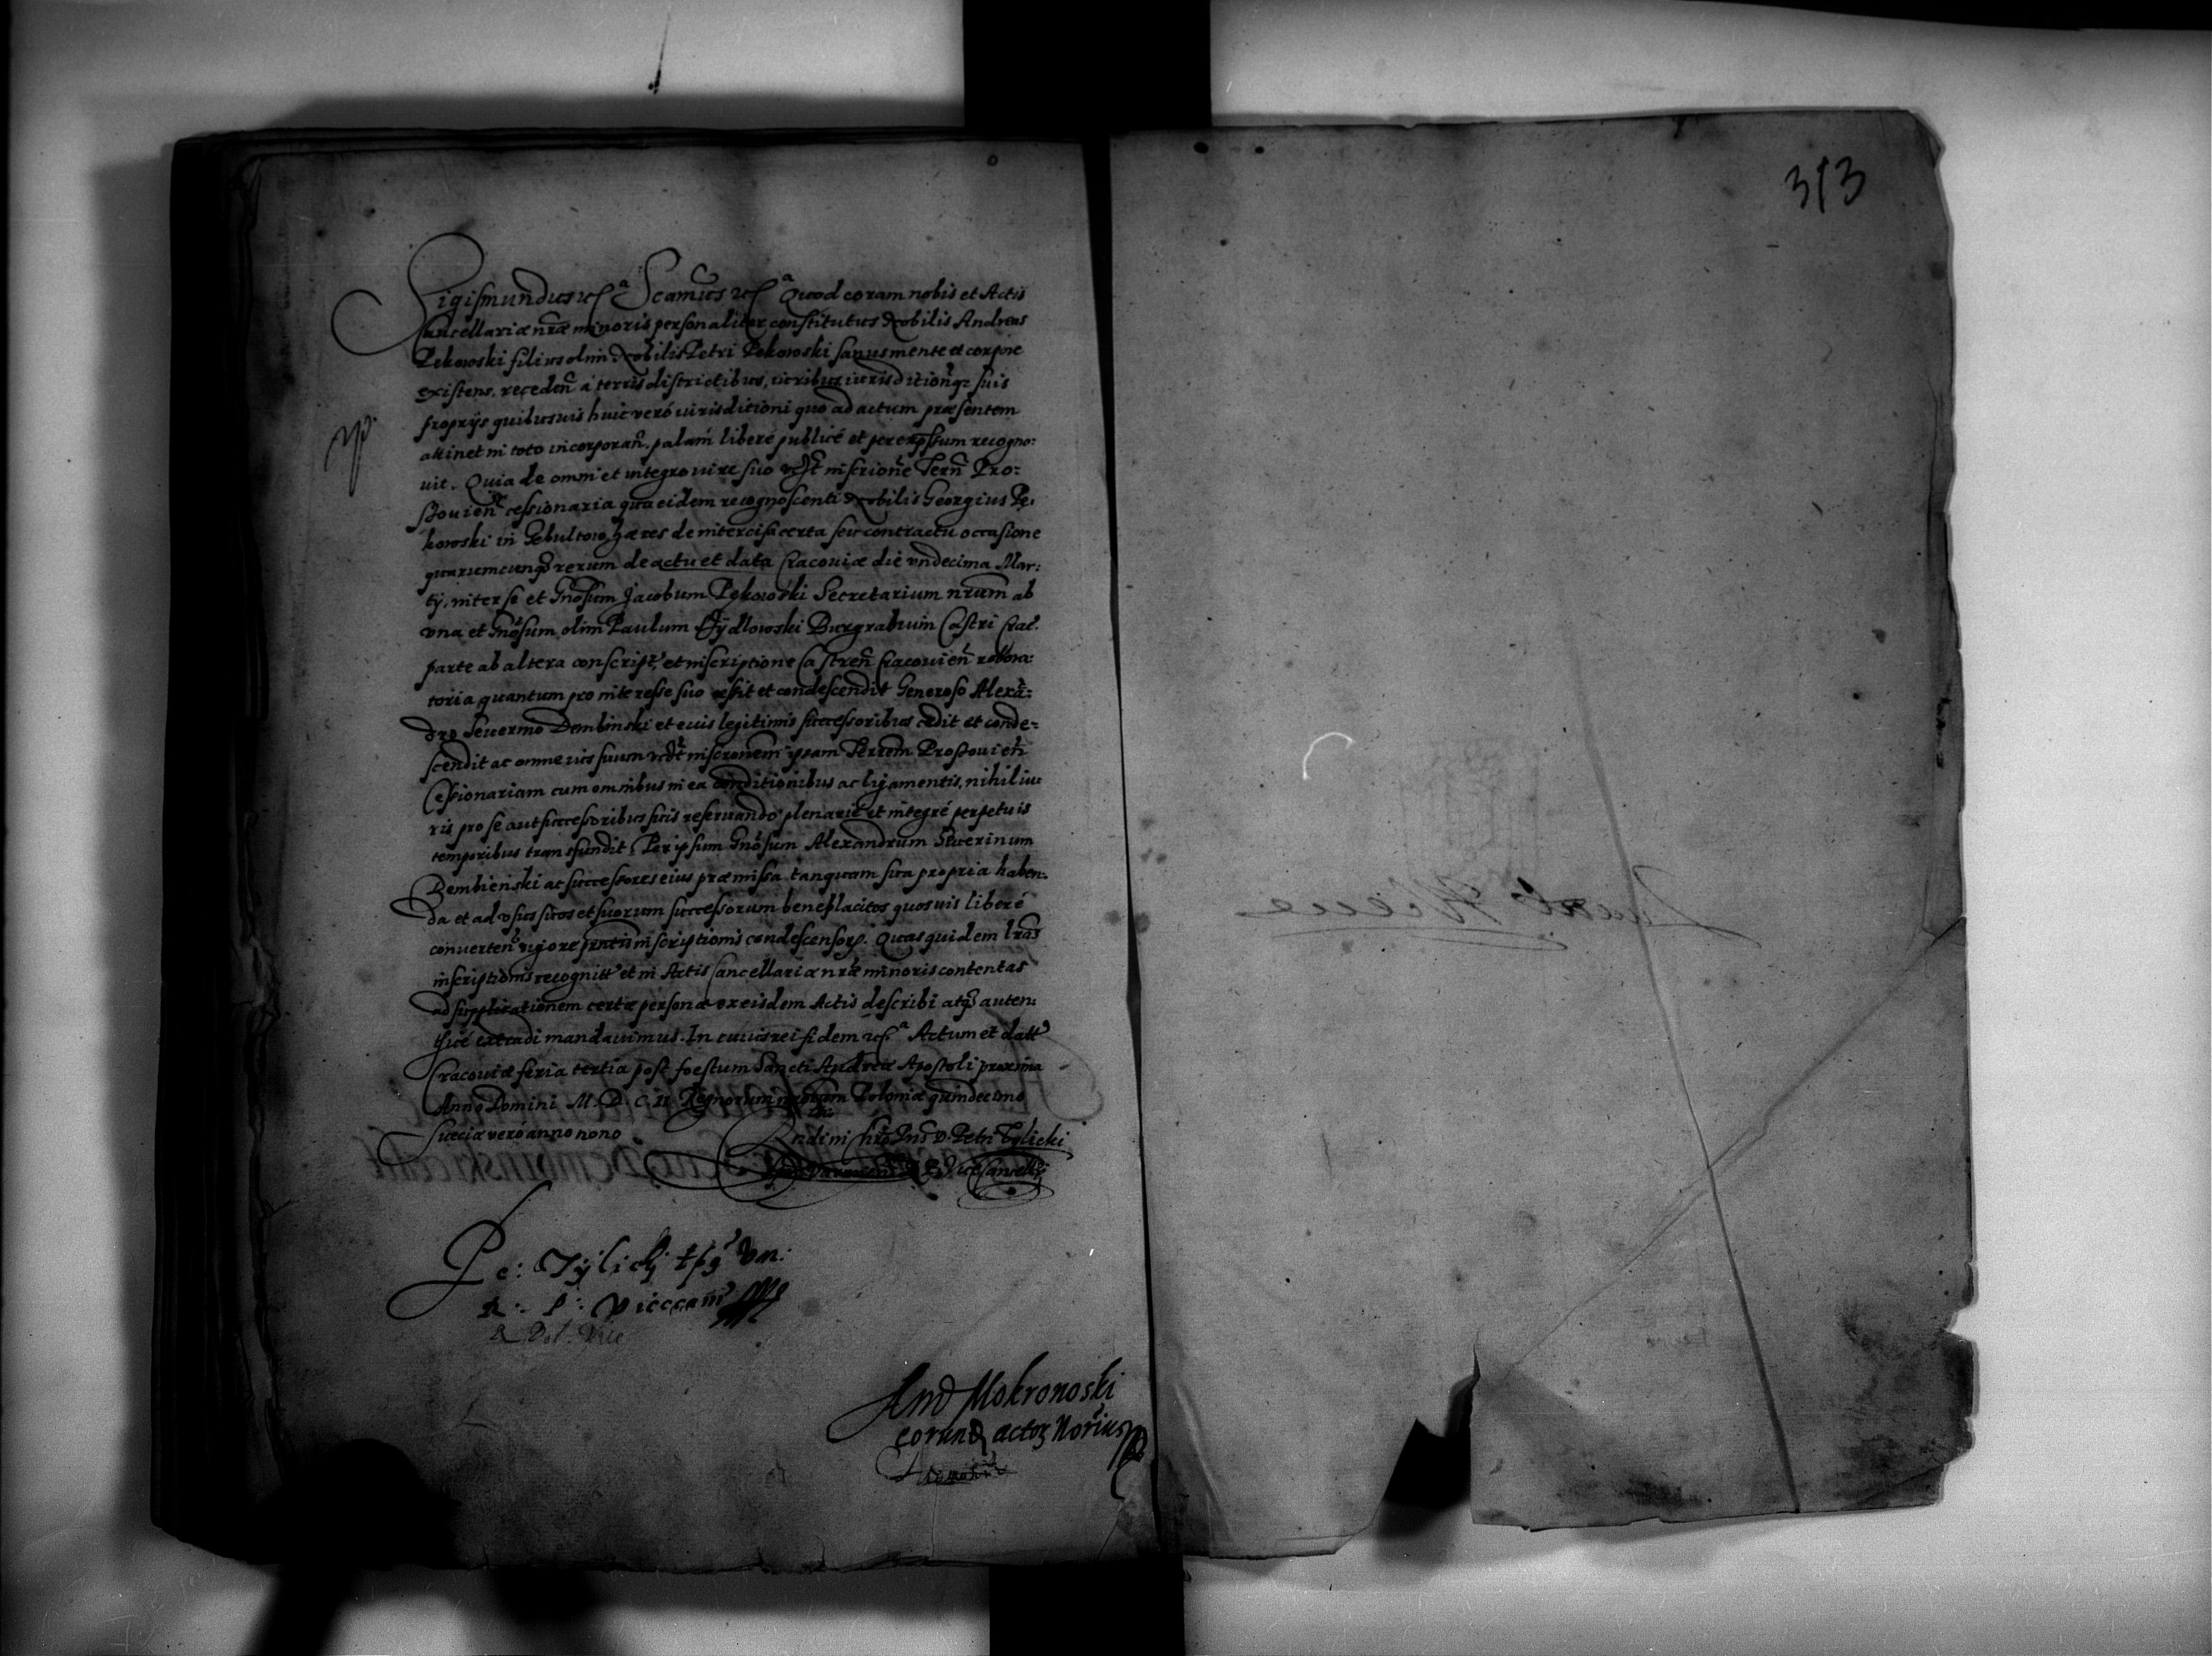 Sigismundus etc.ᵃ Scamus etc.ᵃ Quod coram nobis et Actis
Cancellariæ nræ minoris personaliter constitutus Nobilis Andreas
Pękowski filius olim Nobilis Petri Pękowski sanus mente et corpore
existens, receden̄ a terris districtibus, iuribus iurisdition̄q; suis
proprijs quibusuis huic veró iurisditioni quo ad actum præsentem
attinet in toto incorporan̄. palam liberé publicé et per expssum recogno:
uit. Quia de omni et integro iure suo inscrione Terrn̄
cessionaria qua eidem recognoscenti Nobilis Georgius Pę:
kowski in Gebultow hæres de intercisa certa seu contractu occasione
quarumcunq; rerum de actu et data Cracouiæ die vndecima Mar:
tij, inter se et Gnosum Jacobum Pękowski Secretarium nrum ab
vna et Gnosum olim Paulum Burgrabium Castri Crac.
parte ab altera conscript, et inscriptione Castren̄ Cracouien̄ robora:
toria quantum pro interesse suo cessit et condescendit Generoso Alexā:
dro Seuerino Dembinski et eius legitimis successoribus cedit et conde:
scendit ac omne ius suum inscrionem ipsam Terrem
Cessionariam cum omnibus in ea conditionibus ac ligamentis, nihil iu:
ris pro se aut successoribus suis reseruando plenarié et integré perpetuis
temporibus transfundit. Per ipsum Gnosum Alexandrum Seuerinum
Dembienski ac successores eius præmissa tanquam sua propria haben:
da et ad vsus suos et suorum successorum beneplacitos quosuis liberé
conuerten̄ vigore pntis inscriptionis condescensory. Quas quidem lras
inscriptionis recognitt et in Actis Cancellariæ nræ minoris contentas
ad supplicationem certæ personæ ex eisdem Actis describi atq; auten:
ticé extradi mandauimus. In cuius rei fidem etc.ᵃ Actum et datt
Cracouiæ feria tertia post foestum Sancti Andreæ Apostoli proxima
Anno Domini M. D. C. II Regnorum nrorum Poloniæ quindecimo
Sueciæ veró anno nono
D. Petri Tylicki
R. P. Vicecancellrij
Pe: Tylicki Eps Var:
R: P: Vicecan
R. Pol. Vice
And Mokronoski
eorund actor Norius
313